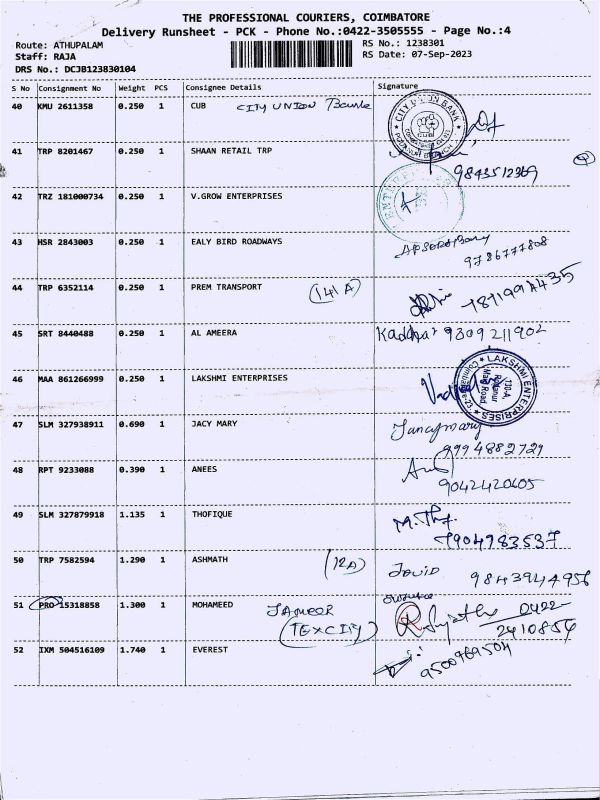 THE PROFESSIONAL COURIERS, COIMBATORE
Delivery Runsheet - PCK - Phone No.:0422-3505555 - Page No.:4
Route: ATHUPALAM RS No.: 1238301
Staff: RAJA RS Date: 07-Sep-2023
DRS No.: DCJB123830104
S No Consignment No Weight PCS Consignee Details Signature
40 KMU 2611358 0.250 1 CUB CITY UNION Bank
CITY UNION BANK
41 TRP 8201467 0.250 1 SHAAN RETAIL TRP
9843512369
42 TRZ 181000734 0.250 1 V.GROW ENTERPRISES
43 HSR 2843003 0.250 1 EALY BIRD ROADWAYS
9786777808
44 TRP 6352114 0.250 1 PREM TRANSPORT (141 A)
45 SRT 8440488 0.250 1 AL AMEERA 9309211902
46 MAA 861266999 0.250 1 LAKSHMI ENTERPRISES
LAKSHMI ENTERPRISES
130-A
Main Road
47 SLM 327938911 0.690 1 JACY MARY
9994882729
48 RPT 9233088 0.390 1 ANEES
9042420605
49 SLM 327879918 1.135 1 THOFIQUE
7904983537
50 TRP 7582594 1.290 1 ASHMATH (12A) Jovid 9843944956
51 PRO 15318858 1.300 1 MOHAMEED JAMEER 0422-
(TEXCITY) 2410854
52 IXM 504516109 1.740 1 EVEREST
9500969504